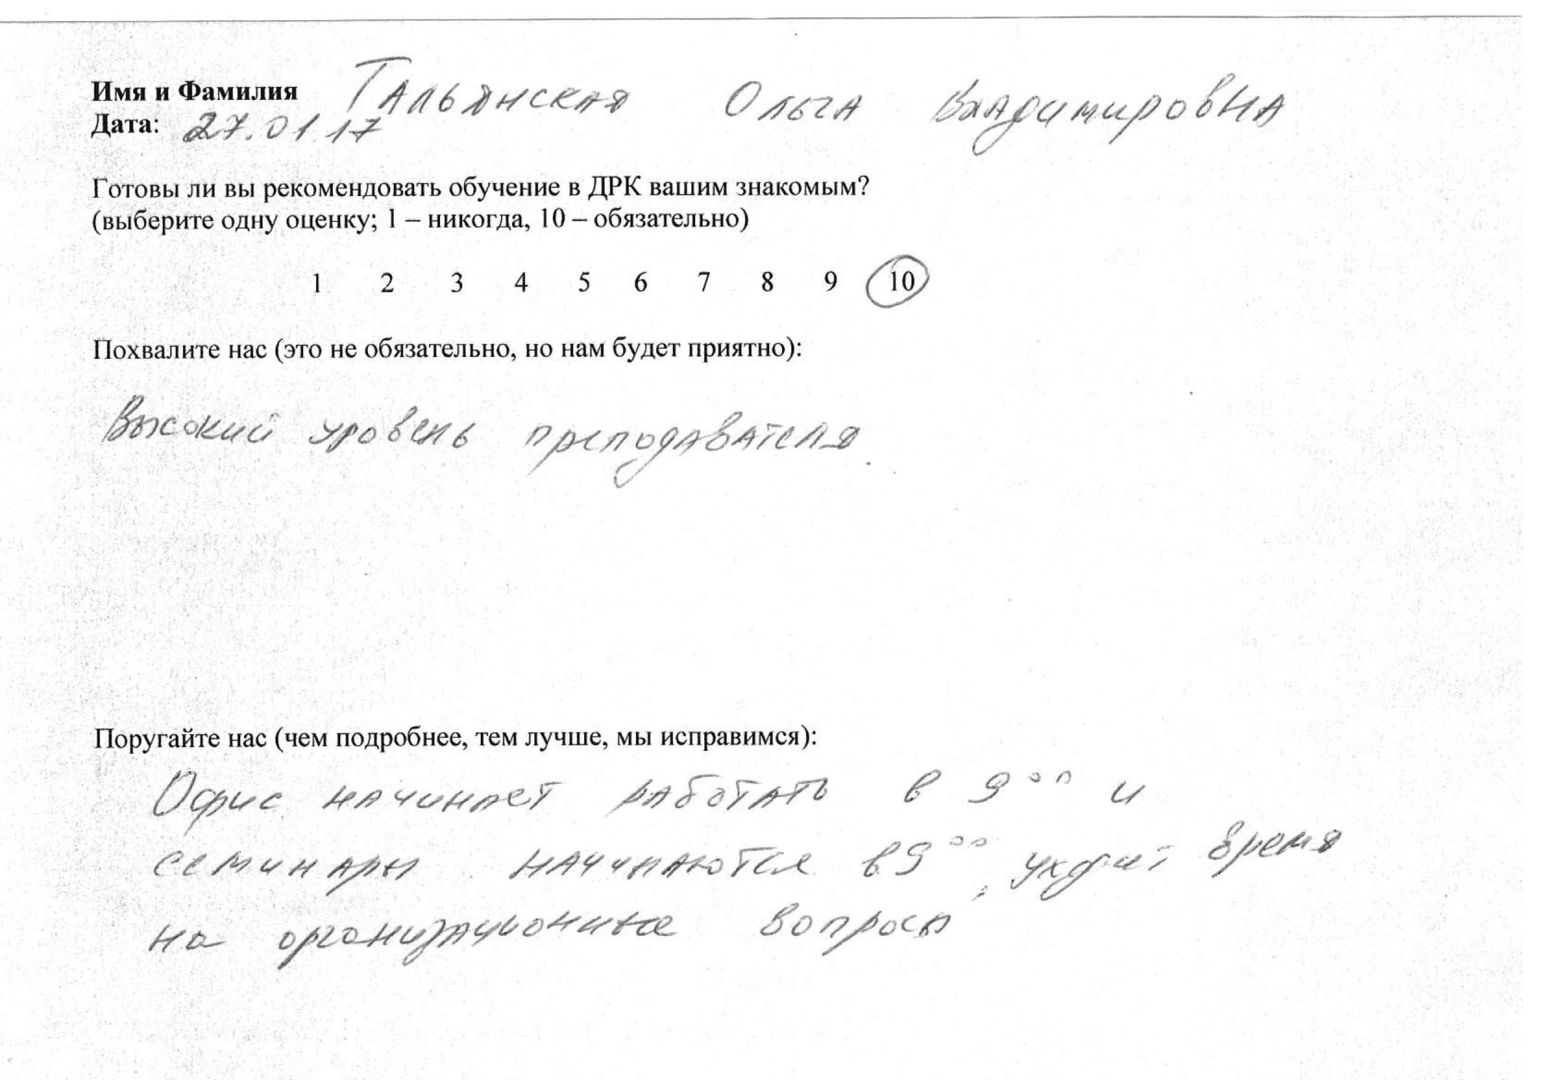 Имя и Фамилия Тальянская Ольга Владимировна
Дата: 27.01.17
Готовы ли вы рекомендовать обучение в ДРК вашим знакомым?
(выберите одну оценку; 1 – никогда, 10 – обязательно)
1 2 3 4 5 6 7 8 9 10
Похвалите нас (это не обязательно, но нам будет приятно):
Высокий уровень преподавателя.
Поругайте нас (чем подробнее, тем лучше, мы исправимся):
Офис начинает работать в 9°° и
семинары начинаются в 9°°, уходит время
на организационные вопросы